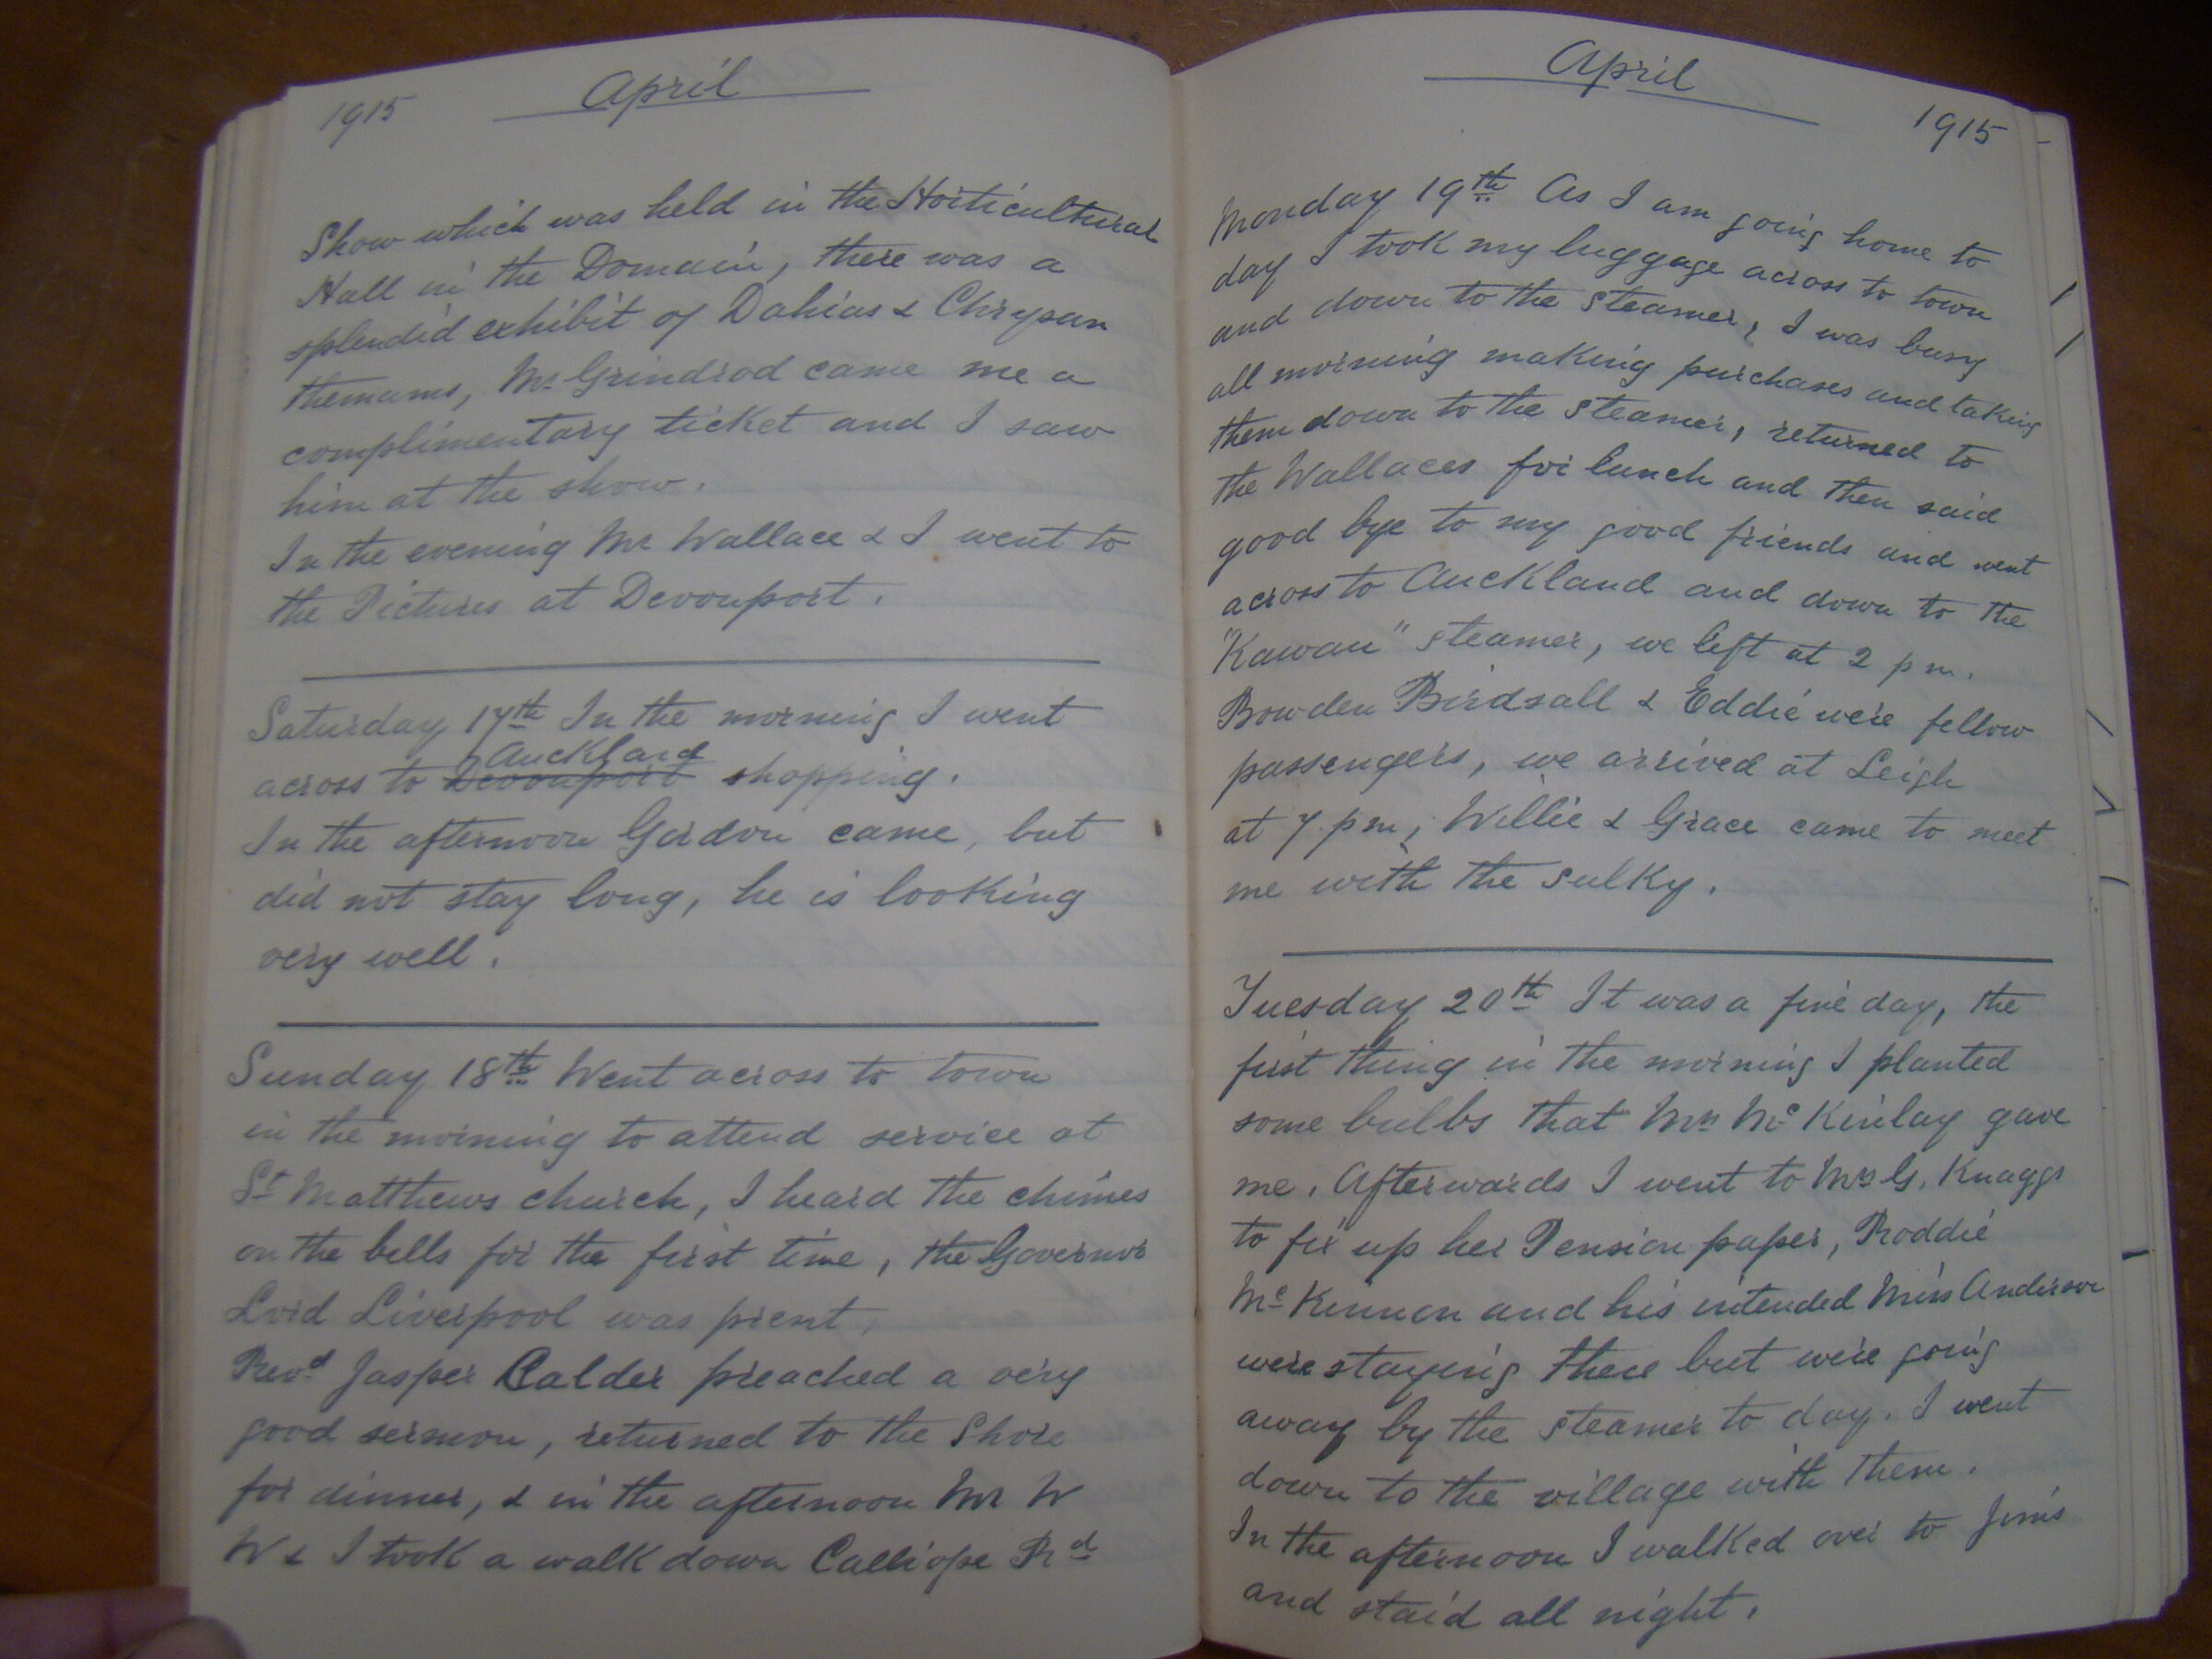 1915 April
Show which was held in the Horticultural
Hall in the Domain, there was a
splendid exhibit of Dahias & Chrysan
themams, Mr Grindrod came me a
complimentary ticket and I saw
him at the show.
In the evening Mr Wallace & I went to
the Pictures at Devonport.
Saturday 17th In the morning I went
Auckland
across to Devonport shopping.
In the afternoon Gordon came, but
did not stay long, he is looking
very well.
Sunday 18th Went across to town
in the morning to attend service at
St Matthews church, I heard the chimes
on the bells for the first time, the Governor
Lord Liverpool was prent,
Revd Jasper Calder preached a very
good sermon, returned to the Shore
for dinner, & in the afternoon Mr W
W & I took a walk down Calliope Rd
April 1915
Monday 19th As I am going home to
day I took my luggage across to town
and down to the steamer, I was busy
all morning making purchases and taking
them down to the steamer, returned to
the Wallaces for lunch and then said
good bye to my good friends and went
across to Auckland and down to the
"Kawau" steamer, we left at 2 pm.
Bowden Birdsall & Eddie were fellow
passengers, we arrived at Leigh
at 7.pm, Willie & Grace came to meet
me with the sulky.
Tuesday 20th It was a fine day, the
first thing in the morning I planted
some bulbs that Mrs McKinlay gave
me. Afterwards I went to Mrs G. Knaggs
to fix up her Pension paper, Roddie
McKinnon and his intended Miss Anderson
were staying there but were going
away by the steamer to day. I went
down to the village with them.
In the afternoon I walked over to Jim's
and staid all night.